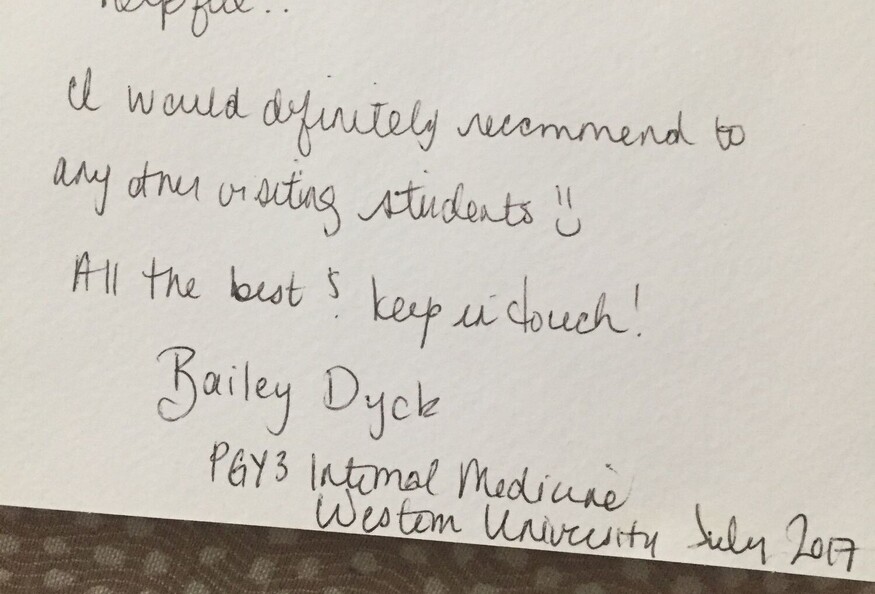 helpful!!
I would definitely recommend to
any other visiting students
All the best & keep in touch!
Bailey Dyck
PGY3 Internal Medicine
Western University July 2017